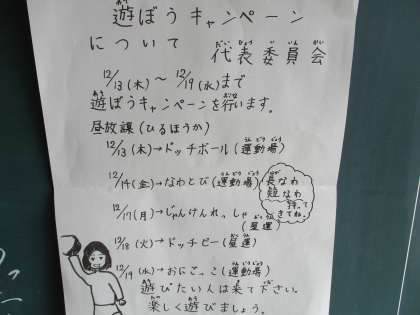 遊ぼうキャンペーン
について 代表委員会
12/13(木)～12/19(水)まで
遊ぼうキャンペーンを行います。
昼放課(ひるほうか)
12/13(木)→ドッチボール(運動場)
12/14(金)→なわとび(運動場)
長なわ
短なわ
持って
きてね。
12/17(月)→じゃんけんれっしゃ
(屋運)
12/18(火)→ドッチビー(屋運)
12/19(水)→おにごっこ(運動場)
遊びたい人は来て下さい。
楽しく遊びましょう。